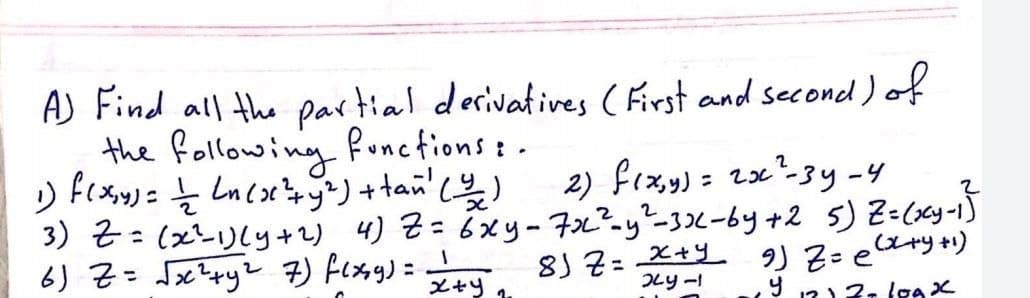 A) Find all the partial derivatives (First and second) of
the following functions:-
1) f(x,y) = 1/2 Ln(x²+y²) + tan⁻¹(y/x)   2) f(x,y) = 2x²-3y-4
3) Z = (x²-1)(y+2)   4) Z = 6xy-7x²-y²-3x-6y+2   5) Z=(xy-1)²
6) Z = √x²+y²   7) f(x,y) = 1/x+y   8) Z = x+y/xy-1   9) Z = e^(x+y+1)